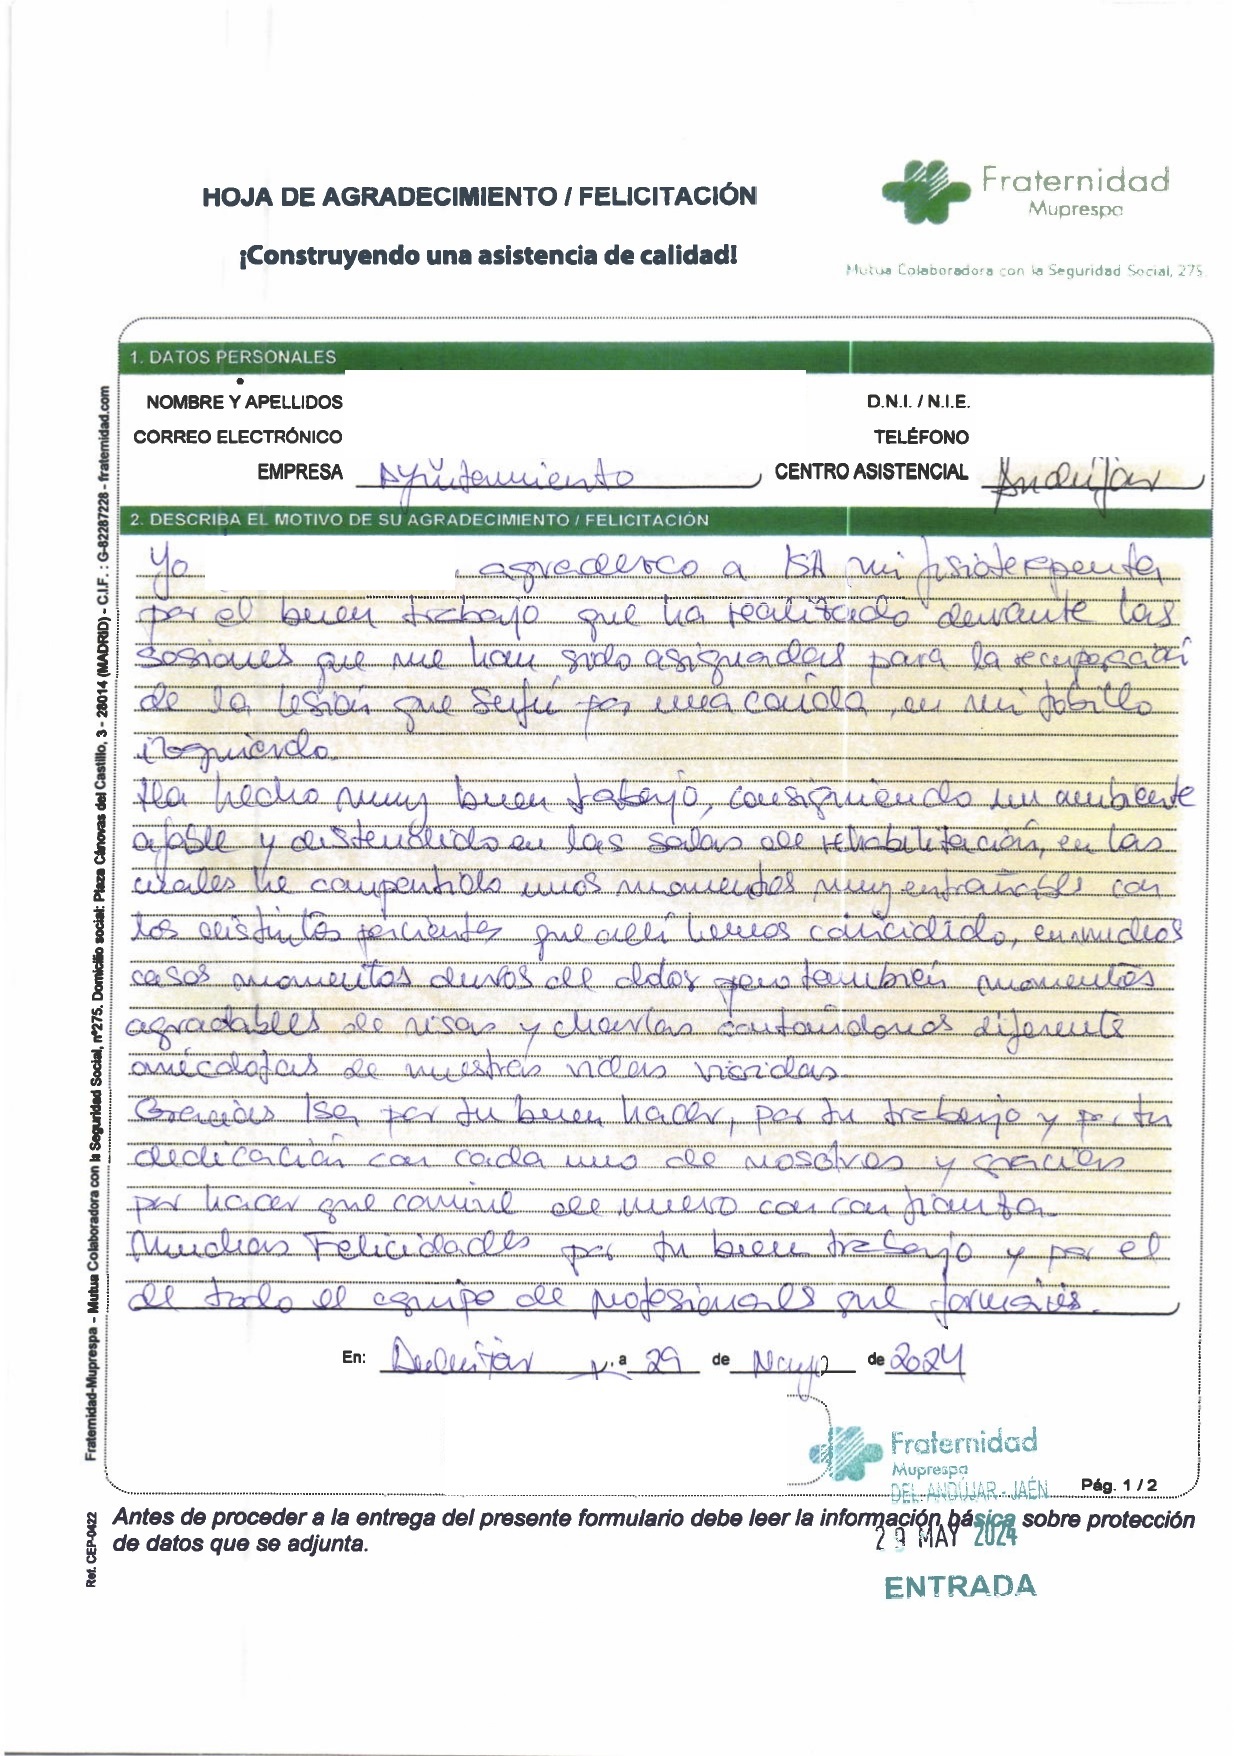 HOJA DE AGRADECIMIENTO / FELICITACIÓN
¡Construyendo una asistencia de calidad!
Fraternidad
Muprespa
Mutua Colaboradora con la Seguridad Social, 275.
1. DATOS PERSONALES
NOMBRE Y APELLIDOS
D.N.I. / N.I.E.
CORREO ELECTRÓNICO
TELÉFONO
EMPRESA Ayuntamiento
CENTRO ASISTENCIAL Andújar
2. DESCRIBA EL MOTIVO DE SU AGRADECIMIENTO / FELICITACIÓN
Yo , agradezco a ISA mi fisioterapeuta
por el buen trabajo que ha realizado durante las
sesiones que me han sido asignadas para la recuperación
de la lesión que sufrí por una caída, en mi tobillo
izquierdo.
Ha hecho muy buen trabajo, consiguiendo un ambiente
afable y distendido en las salas de rehabilitación, en las
cuales he compartido unos momentos muy entrañables con
los distintos pacientes que allí hemos coincidido, en muchos
casos momentos duros de dolor pero también momentos
agradables de risas y charlas contándonos diferente
anécdotas de nuestras vidas vividas.
Gracias Isa por tu buen hacer, por tu trabajo y por tu
dedicación con cada uno de nosotros y gracias
por hacer que camine de nuevo con confianza.
Muchas Felicidades por tu buen trabajo y por el
de todo el equipo de profesionales que formáis.
En: Andújar, a 29 de Mayo de 2024
Fraternidad
Muprespa
DEL. ANDÚJAR - JAÉN
Pág. 1 / 2
Antes de proceder a la entrega del presente formulario debe leer la información básica sobre protección
de datos que se adjunta.
29 MAY 2024
ENTRADA
Fraternidad-Muprespa – Mutua Colaboradora con la Seguridad Social, nº275. Domicilio social: Plaza Cánovas del Castillo, 3 - 28014 (MADRID) - C.I.F. : G-82287228 - fraternidad.com
Ref. CEP-0422